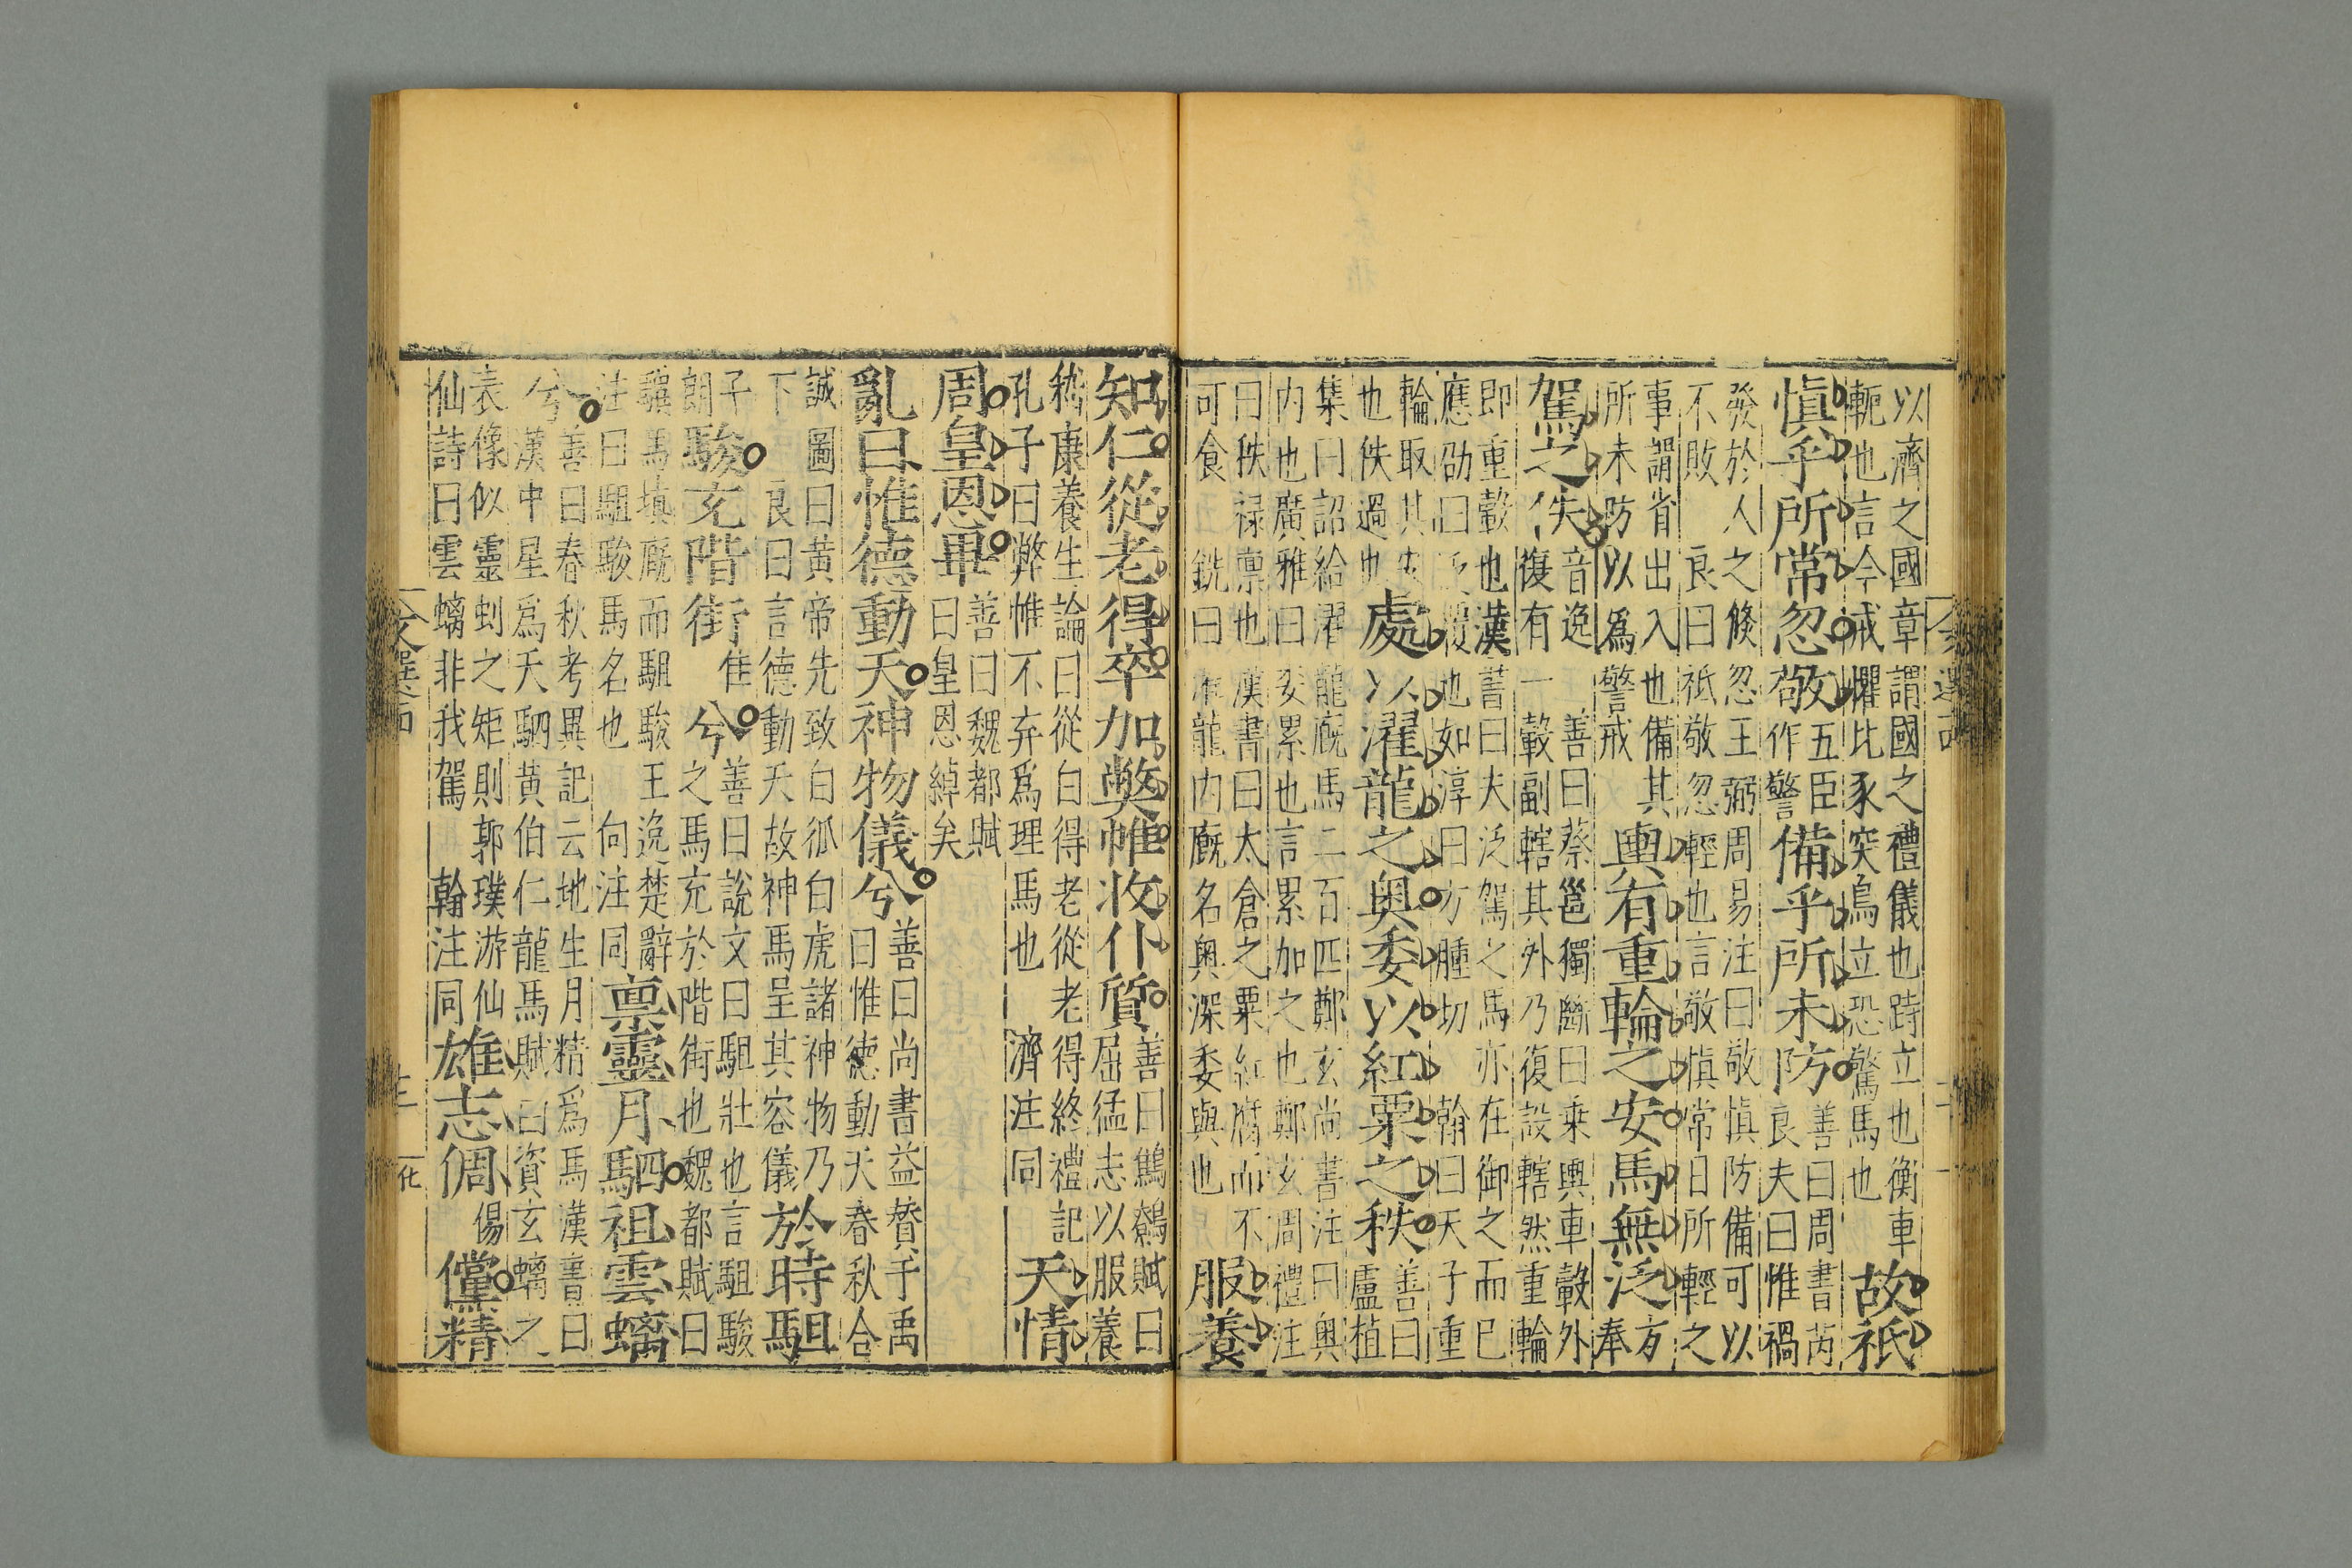 以濟之國章謂國之禮儀也跱立也衡車
軛也言今戒懼比豕突鳥立恐驚馬也
故祗
慎乎所常忽敬
五臣
作警
備乎所未防
善曰周書芮
良夫曰惟禍
發於人之倏忽王弼周易注曰敬慎防備可以
不敗 良曰祗敬忽輕也言敬慎常日所輕之
事謂省出入也備其
所未防以爲警戒
輿有重輪之安馬無泛
方
奉
駕之佚
音逸 善曰蔡邕獨斷曰乘輿車轂外
復有一轂副轄其外乃復設轄然重輪
即重轂也漢書曰夫泛駕之馬亦在御之而已
應劭曰 也如淳曰方腫切 翰曰天子重
輪取其安
也佚過也
處以濯龍之奧委以紅粟之秩
善曰
盧植
集曰詔給濯龍廐馬二百匹鄭玄尚書注曰奧
内也廣雅曰委累也言累加之也鄭玄周禮注
曰秩禄禀也漢書曰太倉之粟紅腐而不
可食 銑曰濯龍内廐名奧深委與也
服養
知仁從老得卒加弊帷收仆質
善曰鷦鷯賦曰
屈猛志以服養
嵇康養生論曰從白得老從老得終禮記
孔子曰弊帷不弃爲理馬也 濟注同
天情
周皇恩畢
善曰魏都賦
曰皇恩綽矣
亂曰惟德動天神物儀兮
善曰尚書益贊于禹
曰惟德動天春秋合
誠圖曰黄帝先致白狐白虎諸神物乃
下 良曰言德動天故神馬呈其容儀
於時駔
子
朗
駿充階街
佳
兮
善曰說文曰駔壯也言駔駿
之馬充於階街也魏都賦曰
驥馬填廐而駔駿王逸楚辭
注曰駔駿馬名也 向注同
禀靈月駟祖雲螭
兮
善曰春秋考異記云地生月精爲馬漢書曰
漢中星爲天駟黄伯仁龍馬賦曰資玄螭之
表像似靈虯之矩則郭璞游仙
仙詩曰雲螭非我駕 翰注同
雄志倜
儻
惕
精
文選